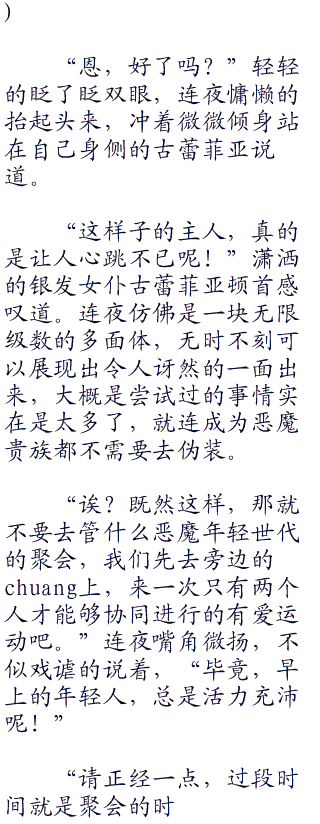 )
“恩，好了吗？”轻轻
的眨了眨双眼，连夜慵懒的
抬起头来，冲着微微倾身站
在自己身侧的古蕾菲亚说
道。
“这样子的主人，真的
是让人心跳不已呢！”潇洒
的银发女仆古蕾菲亚顿首感
叹道。连夜仿佛是一块无限
级数的多面体，无时不刻可
以展现出令人讶然的一面出
来，大概是尝试过的事情实
在是太多了，就连成为恶魔
贵族都不需要去伪装。
“诶？既然这样，那就
不要去管什么恶魔年轻世代
的聚会，我们先去旁边的
chuang上，来一次只有两个
人才能够协同进行的有爱运
动吧。”连夜嘴角微扬，不
似戏谑的说着，“毕竟，早
上的年轻人，总是活力充沛
呢！”
“请正经一点，过段时
间就是聚会的时